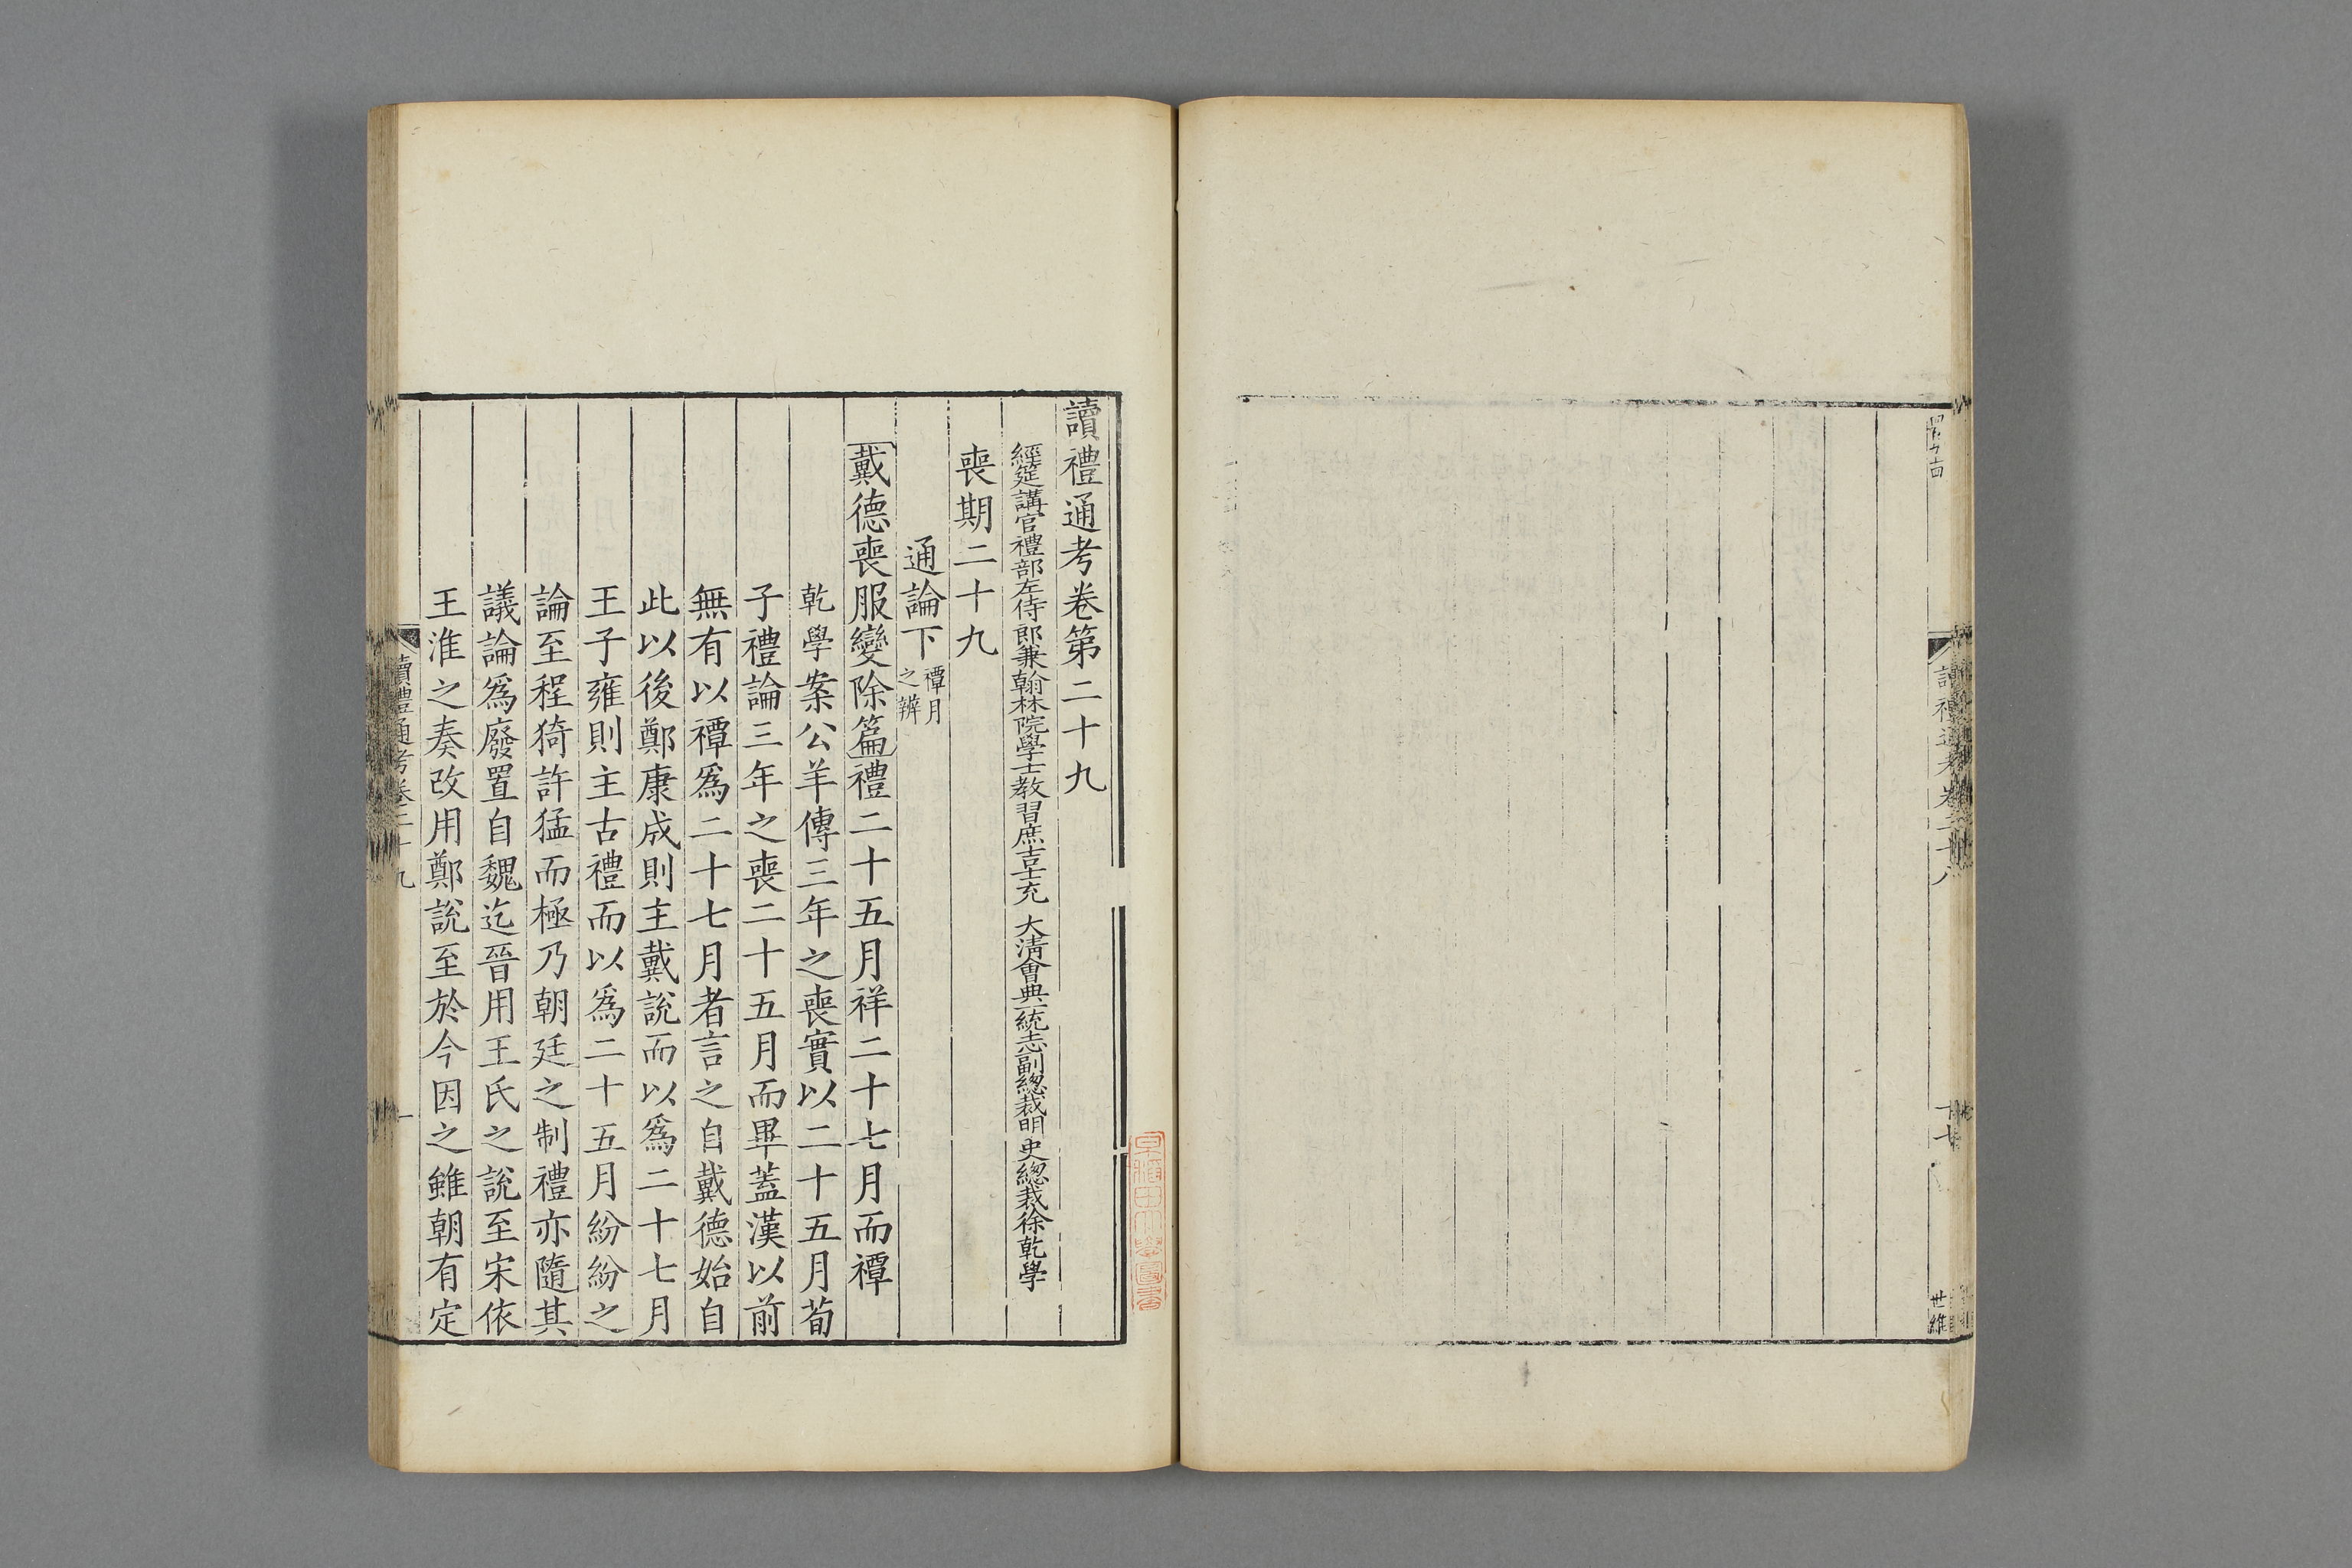 讀禮通考卷第二十九
經筵講官禮部左侍郎兼翰林院學士教習庶吉士充 大清會典一統志副總裁明史總裁徐乾學
喪期二十九
通論下禫月之辨
戴德喪服變除篇禮二十五月祥二十七月而禫
乾學案公羊傳三年之喪實以二十五月荀
子禮論三年之喪二十五月而畢蓋漢以前
無有以禫爲二十七月者言之自戴德始自
此以後鄭康成則主戴說而以爲二十七月
王子雍則主古禮而以爲二十五月紛紛之
論至程猗許猛而極乃朝廷之制禮亦隨其
議論爲廢置自魏迄晉用王氏之說至宋依
王淮之奏改用鄭說至於今因之雖朝有定
讀禮通考卷二十九
一
世維